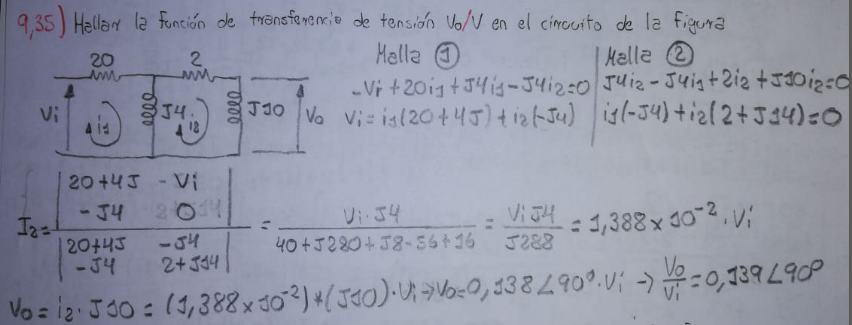 9,35) Hallar la función de transferencia de tensión Vo/V en el circuito de la figura
20 2 Malla ① Malla ②
Vi i1 J4 i2 J10 Vo
-Vi+20i1+J4i1-J4i2=0
Vi=i1(20+4J)+i2(-J4)
J4i2-J4i1+2i2+J10i2=0
i1(-J4)+i2(2+J14)=0
I2= |20+4J -Vi|
|-J4 0|
|20+4J -J4|
|-J4 2+J14|
= Vi·J4 / 40+J280+J8-56+16 = ViJ4 / J288 = 1,388x10⁻²·Vi
Vo=i2·J10=(1,388x10⁻²)*(J10)·Vi→Vo=0,138∠90º·Vi → Vo/Vi=0,139∠90º